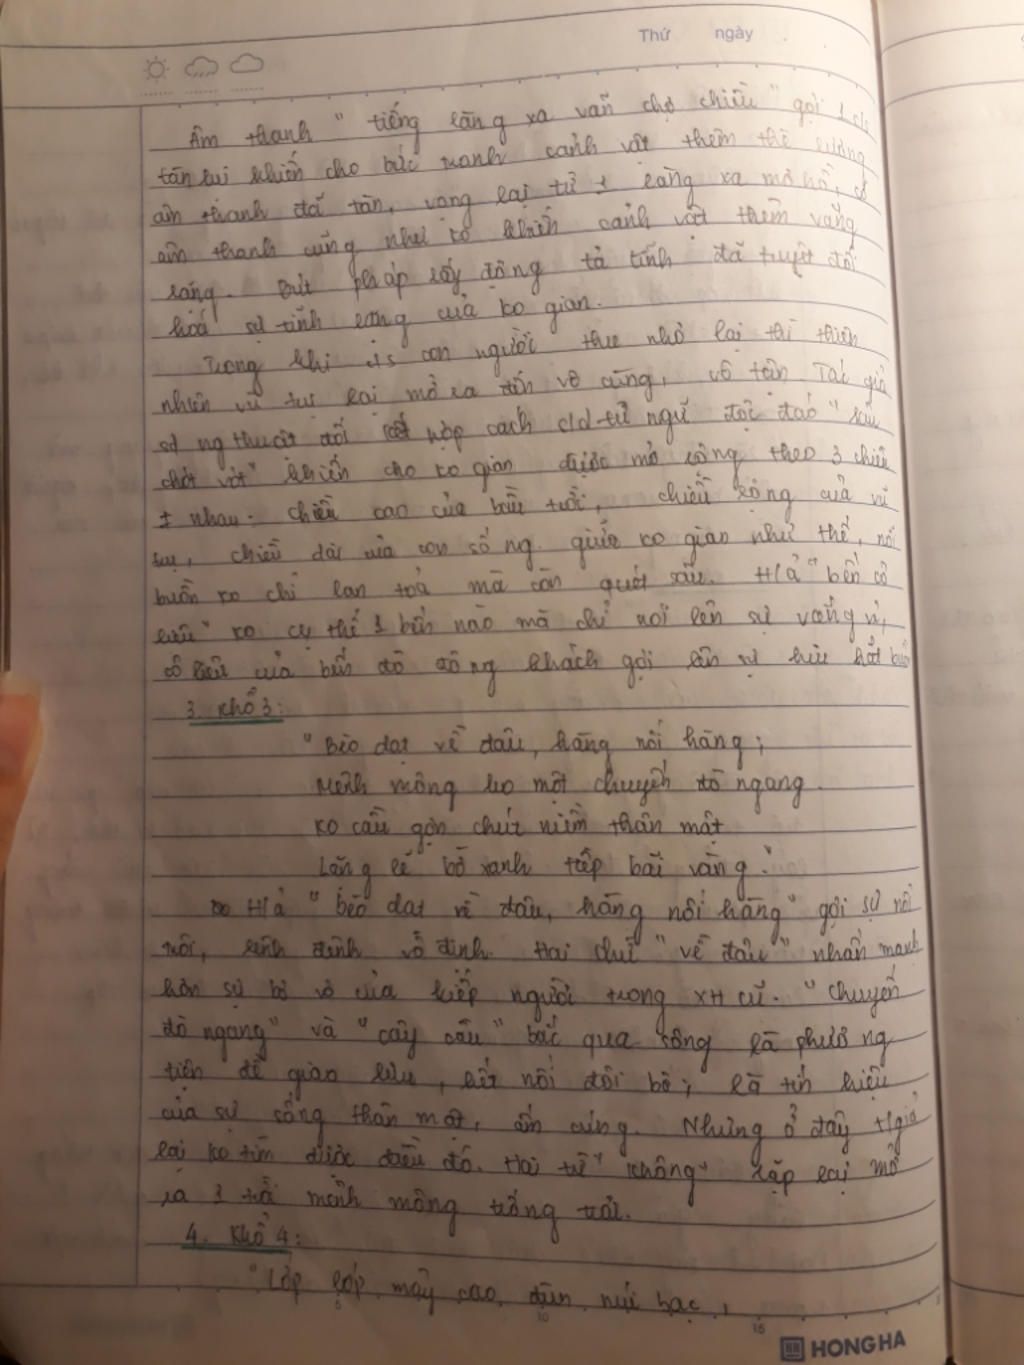 Thứ ngày
Âm thanh " tiếng làng xa vãn chợ chiều " gợi 1 c/s
tàn lụi khiến cho bức tranh cảnh vật thêm thê lương
âm thanh đã tàn, vọng lại từ 1 làng xa mơ hồ, có
âm thanh cũng như ko khiến cảnh vật thêm vắng
lặng. Bút pháp lấy động tả tĩnh đã tuyệt đối
hoá sự tĩnh lặng của ko gian.
Trong khi c/s con người thu nhỏ lại thì thiên
nhiên vũ trụ lại mở ra đến vô cùng, vô tận. Tác giả
sd nghthuật đối kết hợp cách c/d từ ngữ độc đáo " sâu
chót vót " khiến cho ko gian được mở rộng theo 3 chiều
≠ nhau: chiều cao của bầu trời, chiều rộng của vũ
trụ, chiều dài của con sông. giữa ko gian như thế, nỗi
buồn ko chỉ lan toả mà còn quát sâu. H/ả " bến cô
liêu " ko cụ thể 1 bến nào mà chỉ nói lên sự vắng vẻ,
cô liêu của bến đò đông khách gợi lên sự hiu hắt buồn
3. Khổ 3:
" Bèo dạt về đâu, hàng nối hàng;
Mênh mông ko một chuyến đò ngang.
Ko cầu gợn chút niềm thân mật
Lặng lẽ bờ xanh tiếp bãi vàng. "
H/ả " bèo dạt về đâu, hàng nối hàng " gợi sự nổi
trôi, lênh đênh vô định. Hai chữ " về đâu " nhấn mạnh
hơn sự bơ vơ của kiếp người trong XH cũ. " Chuyến
đò ngang " và " cây cầu " bắc qua sông là phương
tiện để giao lưu, kết nối đôi bờ; là tín hiệu
của sự sống thân mật, ấm cúng. Nhưng ở đây t/giả
lại ko tìm được điều đó. Hai từ " không " lặp lại mở
ra 1 mênh mông trống trải.
4. Khổ 4:
" Lớp lớp mây cao đùn núi bạc,
5 10 15
HH HONG HA